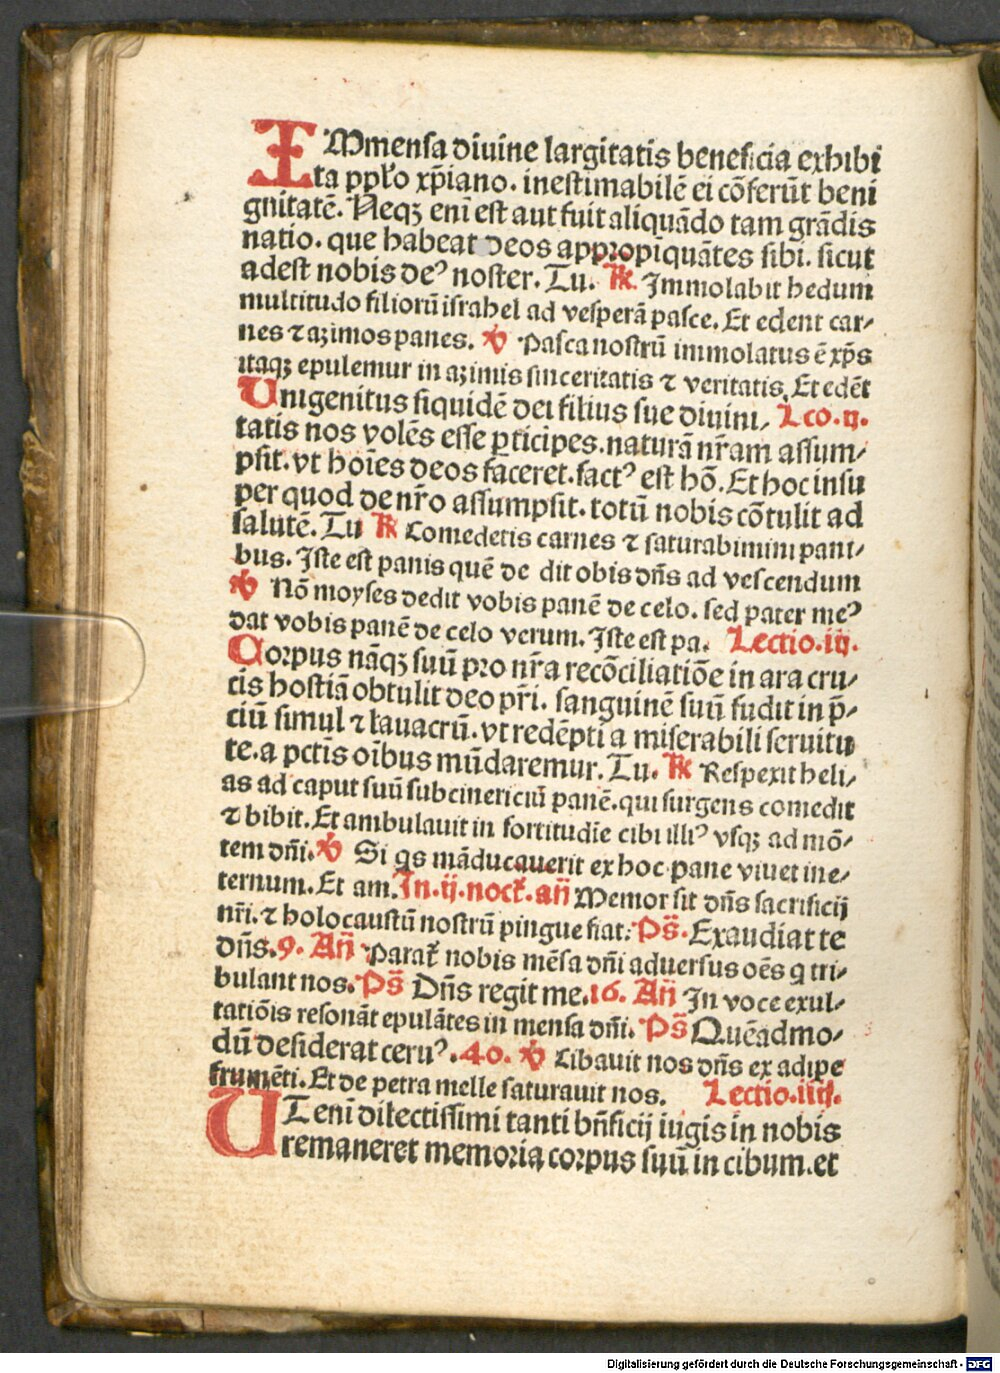 IMmensa diuine largitatis beneficia exhibi
ta pplo xp̄iano. inestimabilē ei cōferūt beni
gnitatē. Neqꝫ eni est aut fuit aliquādo tam grādis
natio. que habeat deos appropīquātes sibi. sicut
adest nobis deꝰ noster. Tu. ℟ Immolabit hedum
multitudo filiorū israhel ad vesperā pasce. Et edent car⸗
nes ⁊ azimos panes. ℣ Pasca nostrū immolatus ē xp̄s
itaqꝫ epulemur in azimis sinceritatis ⁊ veritatis. Et edēt
Unigenitus siquidē dei filius sue diuini⸗ Lco.ij.
tatis nos volēs esse ꝑticipes. naturā nr̄am assum⸗
psit. vt hoīes deos faceret. factꝰ est hō. Et hoc insu
per quod de nr̄o assumpsit. totū nobis cōtulit ad
salutē. Tu ℟ Comedetis carnes ⁊ saturabimini pani⸗
bus. Iste est panis quē de dit obis dn̄s ad vescendum
℣ Nō moyses dedit vobis panē de celo. sed pater meꝰ
dat vobis panē de celo verum. Iste est pa. Lectio.iij.
Corpus nāqꝫ suū pro nr̄a recōciliatiōe in ara cru⸗
cis hostiā obtulit deo pr̄i. sanguinē suū fudit in p̄⸗
ciū simul ⁊ lauacrū. vt redēpti a miserabili seruitu
te. a pctīs oībus mūdaremur. Tu. ℟ Respexit heli⸗
as ad caput suū subcinericiū panē. qui surgens comedit
⁊ bibit. Et ambulauit in fortitudīe cibi illiꝰ vsqꝫ ad mō⸗
tem dn̄i. ℣ Si qs māducauerit ex hoc pane viuet in e⸗
ternum. Et am. In.ij.noct̄.an̄ Memor sit dn̄s sacrificij
nr̄i. ⁊ holocaustū nostrū pingue fiat. Ps̄. Exaudiat te
dn̄s. 9. An̄ Parat̄ nobis mēsa dn̄i aduersus oēs q tri⸗
bulant nos. Ps̄ Dn̄s regit me. 16. An̄ In voce exul⸗
tatiōis resonāt epulātes in mensa dn̄i. Ps̄ Quēadmo⸗
dū desiderat ceruꝰ. 40. ℣ Cibauit nos dn̄s ex adipe
frumēti. Et de petra melle saturauit nos. Lectio.iiij.
UT eni dilectissimi tanti bn̄ficij iugis in nobis
remaneret memoria corpus suū in cibum. et
Digitalisierung gefördert durch die Deutsche Forschungsgemeinschaft - DFG